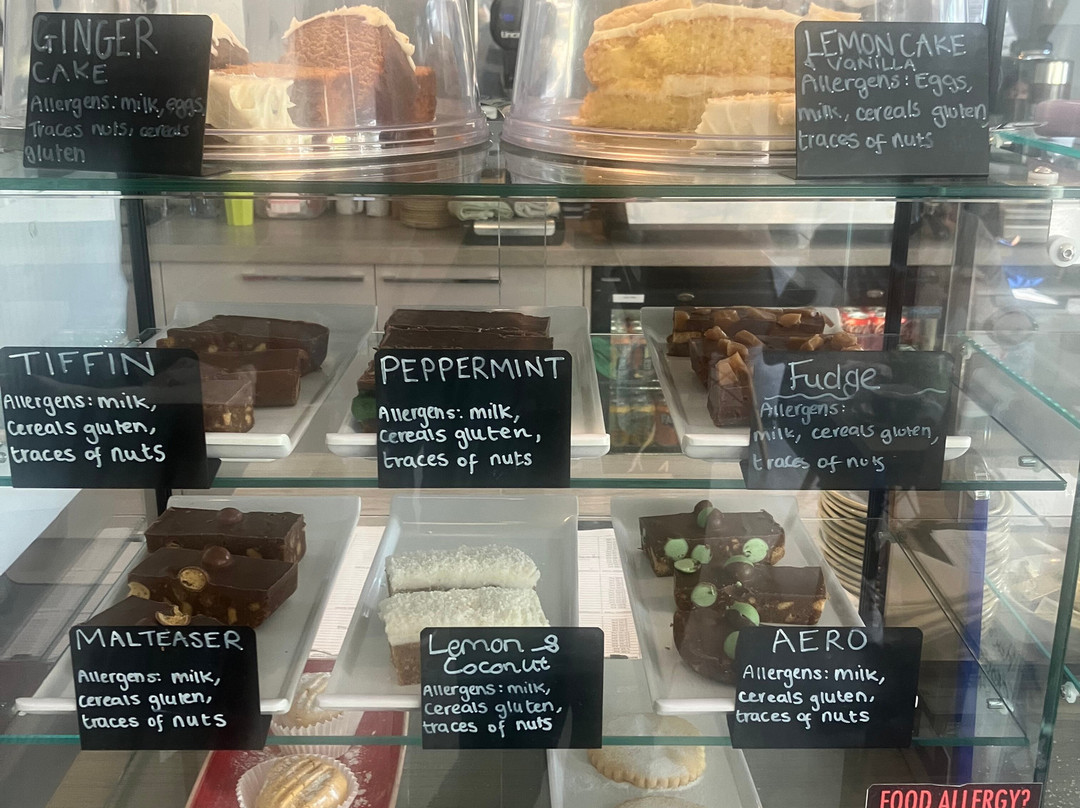 GINGER
CAKE
Allergens: milk, eggs
Traces nuts, cereals
gluten
LEMON CAKE
& VANILLA
Allergens: Eggs,
milk, cereals gluten
traces of nuts
TIFFIN
Allergens: milk,
Cereals gluten,
traces of nuts
PEPPERMINT
Allergens: milk,
Cereals gluten,
traces of nuts
Fudge
Allergens:
milk, cereals gluten,
traces of nuts
MALTEASER
Allergens: milk,
cereals gluten,
traces of nuts
Lemon &
Coconut
Allergens: milk,
Cereals gluten,
traces of nuts
AERO
Allergens: milk,
cereals gluten,
traces of nuts
FOOD ALLERGY?